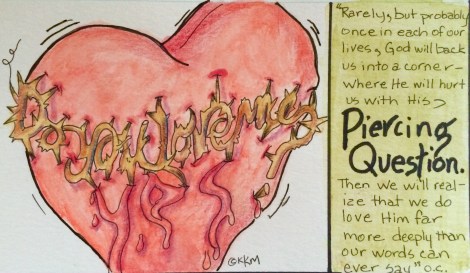 Do you love me?
©KKM
"Rarely, but probably
once in each of our
lives, God will back
us into a corner—
where He will hurt
us with His
Piercing
Question.
Then we will real-
ize that we do
love Him far
more deeply than
our words can
ever say" o.c.